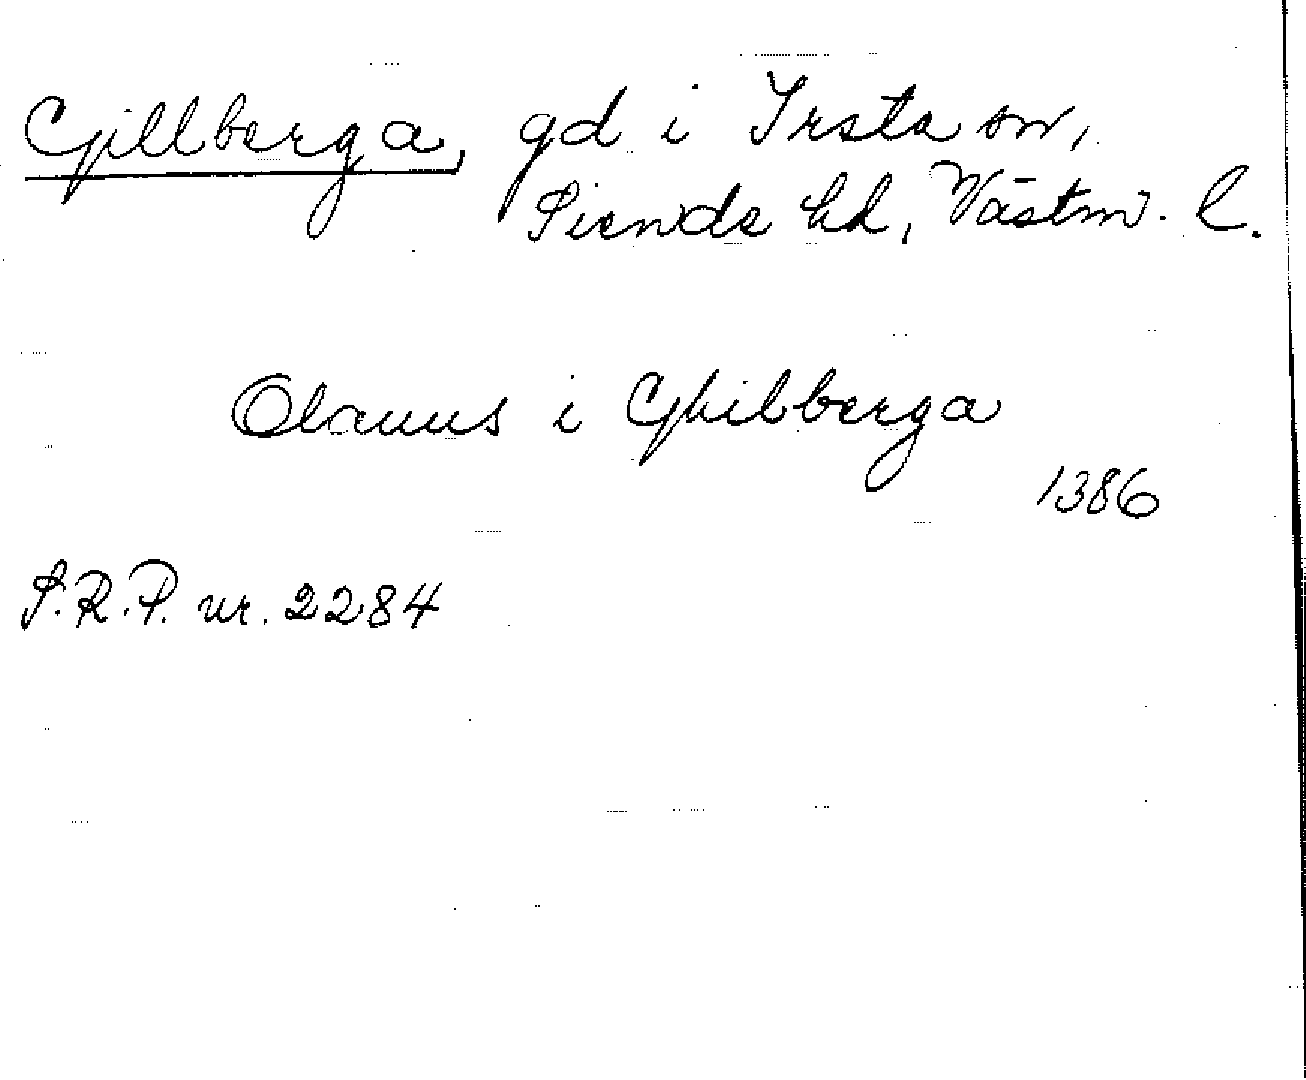 Gillberga, gd i Irsta sn,
Siende hd, Västm. l.
Olauus i Ghilberga
1386
S.R.P. nr. 2284